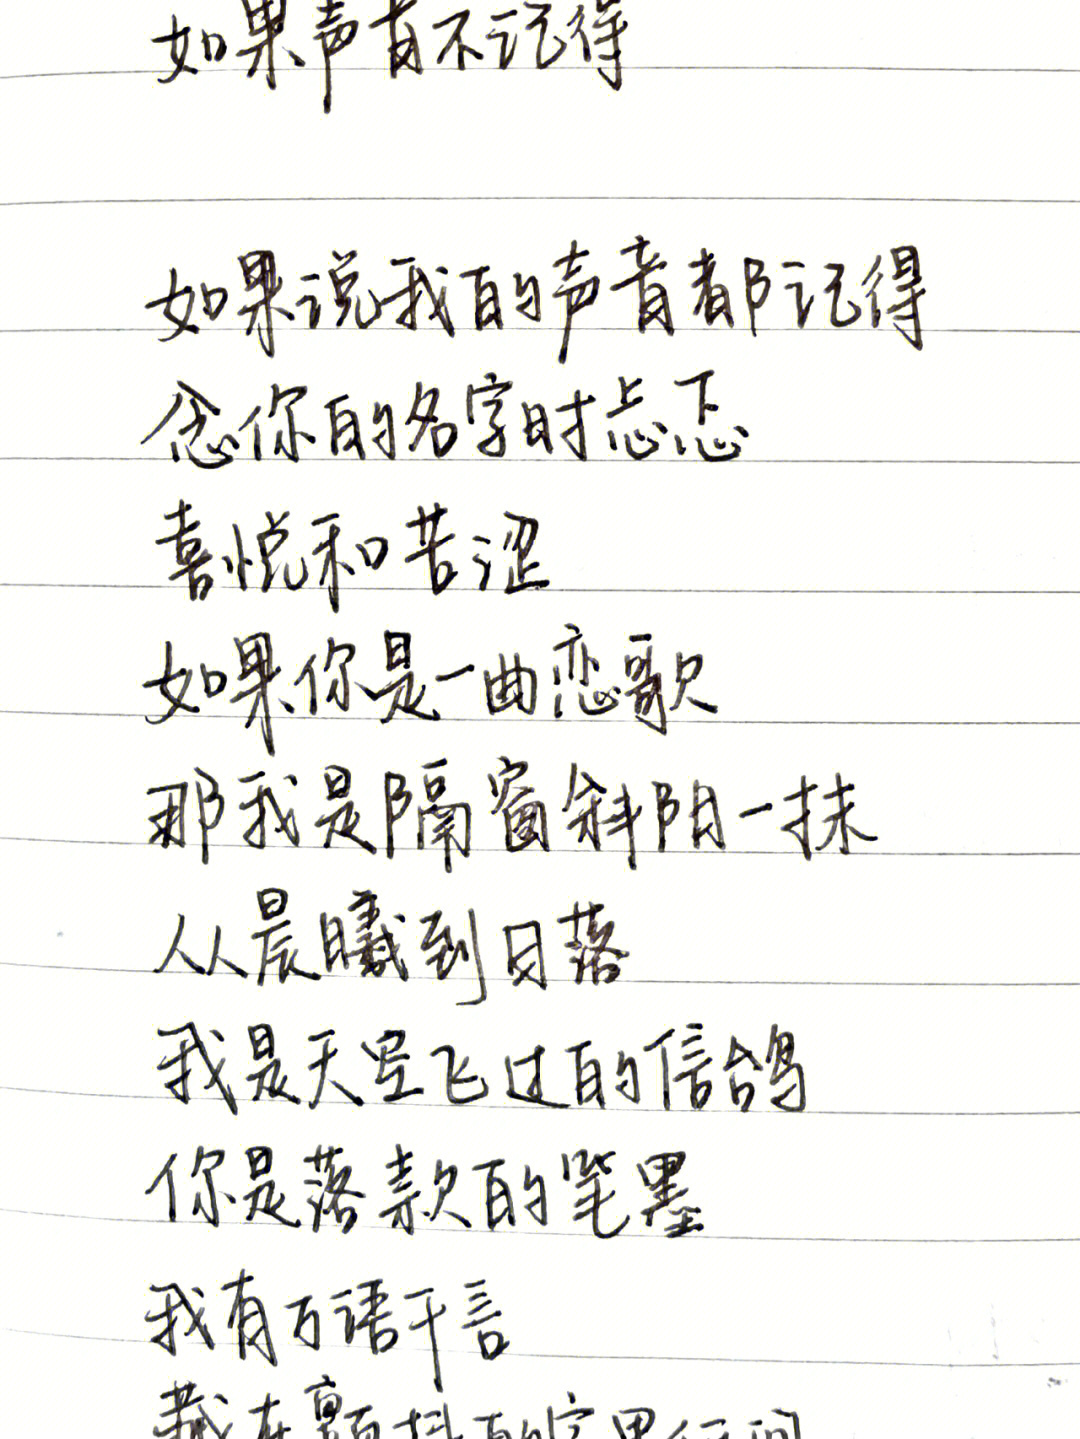 如果声音不记得
如果说我的声音都记得
念你的名字时忐忑
喜悦和苦涩
如果你是一曲恋歌
那我是隔窗斜阳一抹
从晨曦到日落
我是天空飞过的信鸽
你是落款的笔墨
我有万语千言
藏在颤抖的字里行间